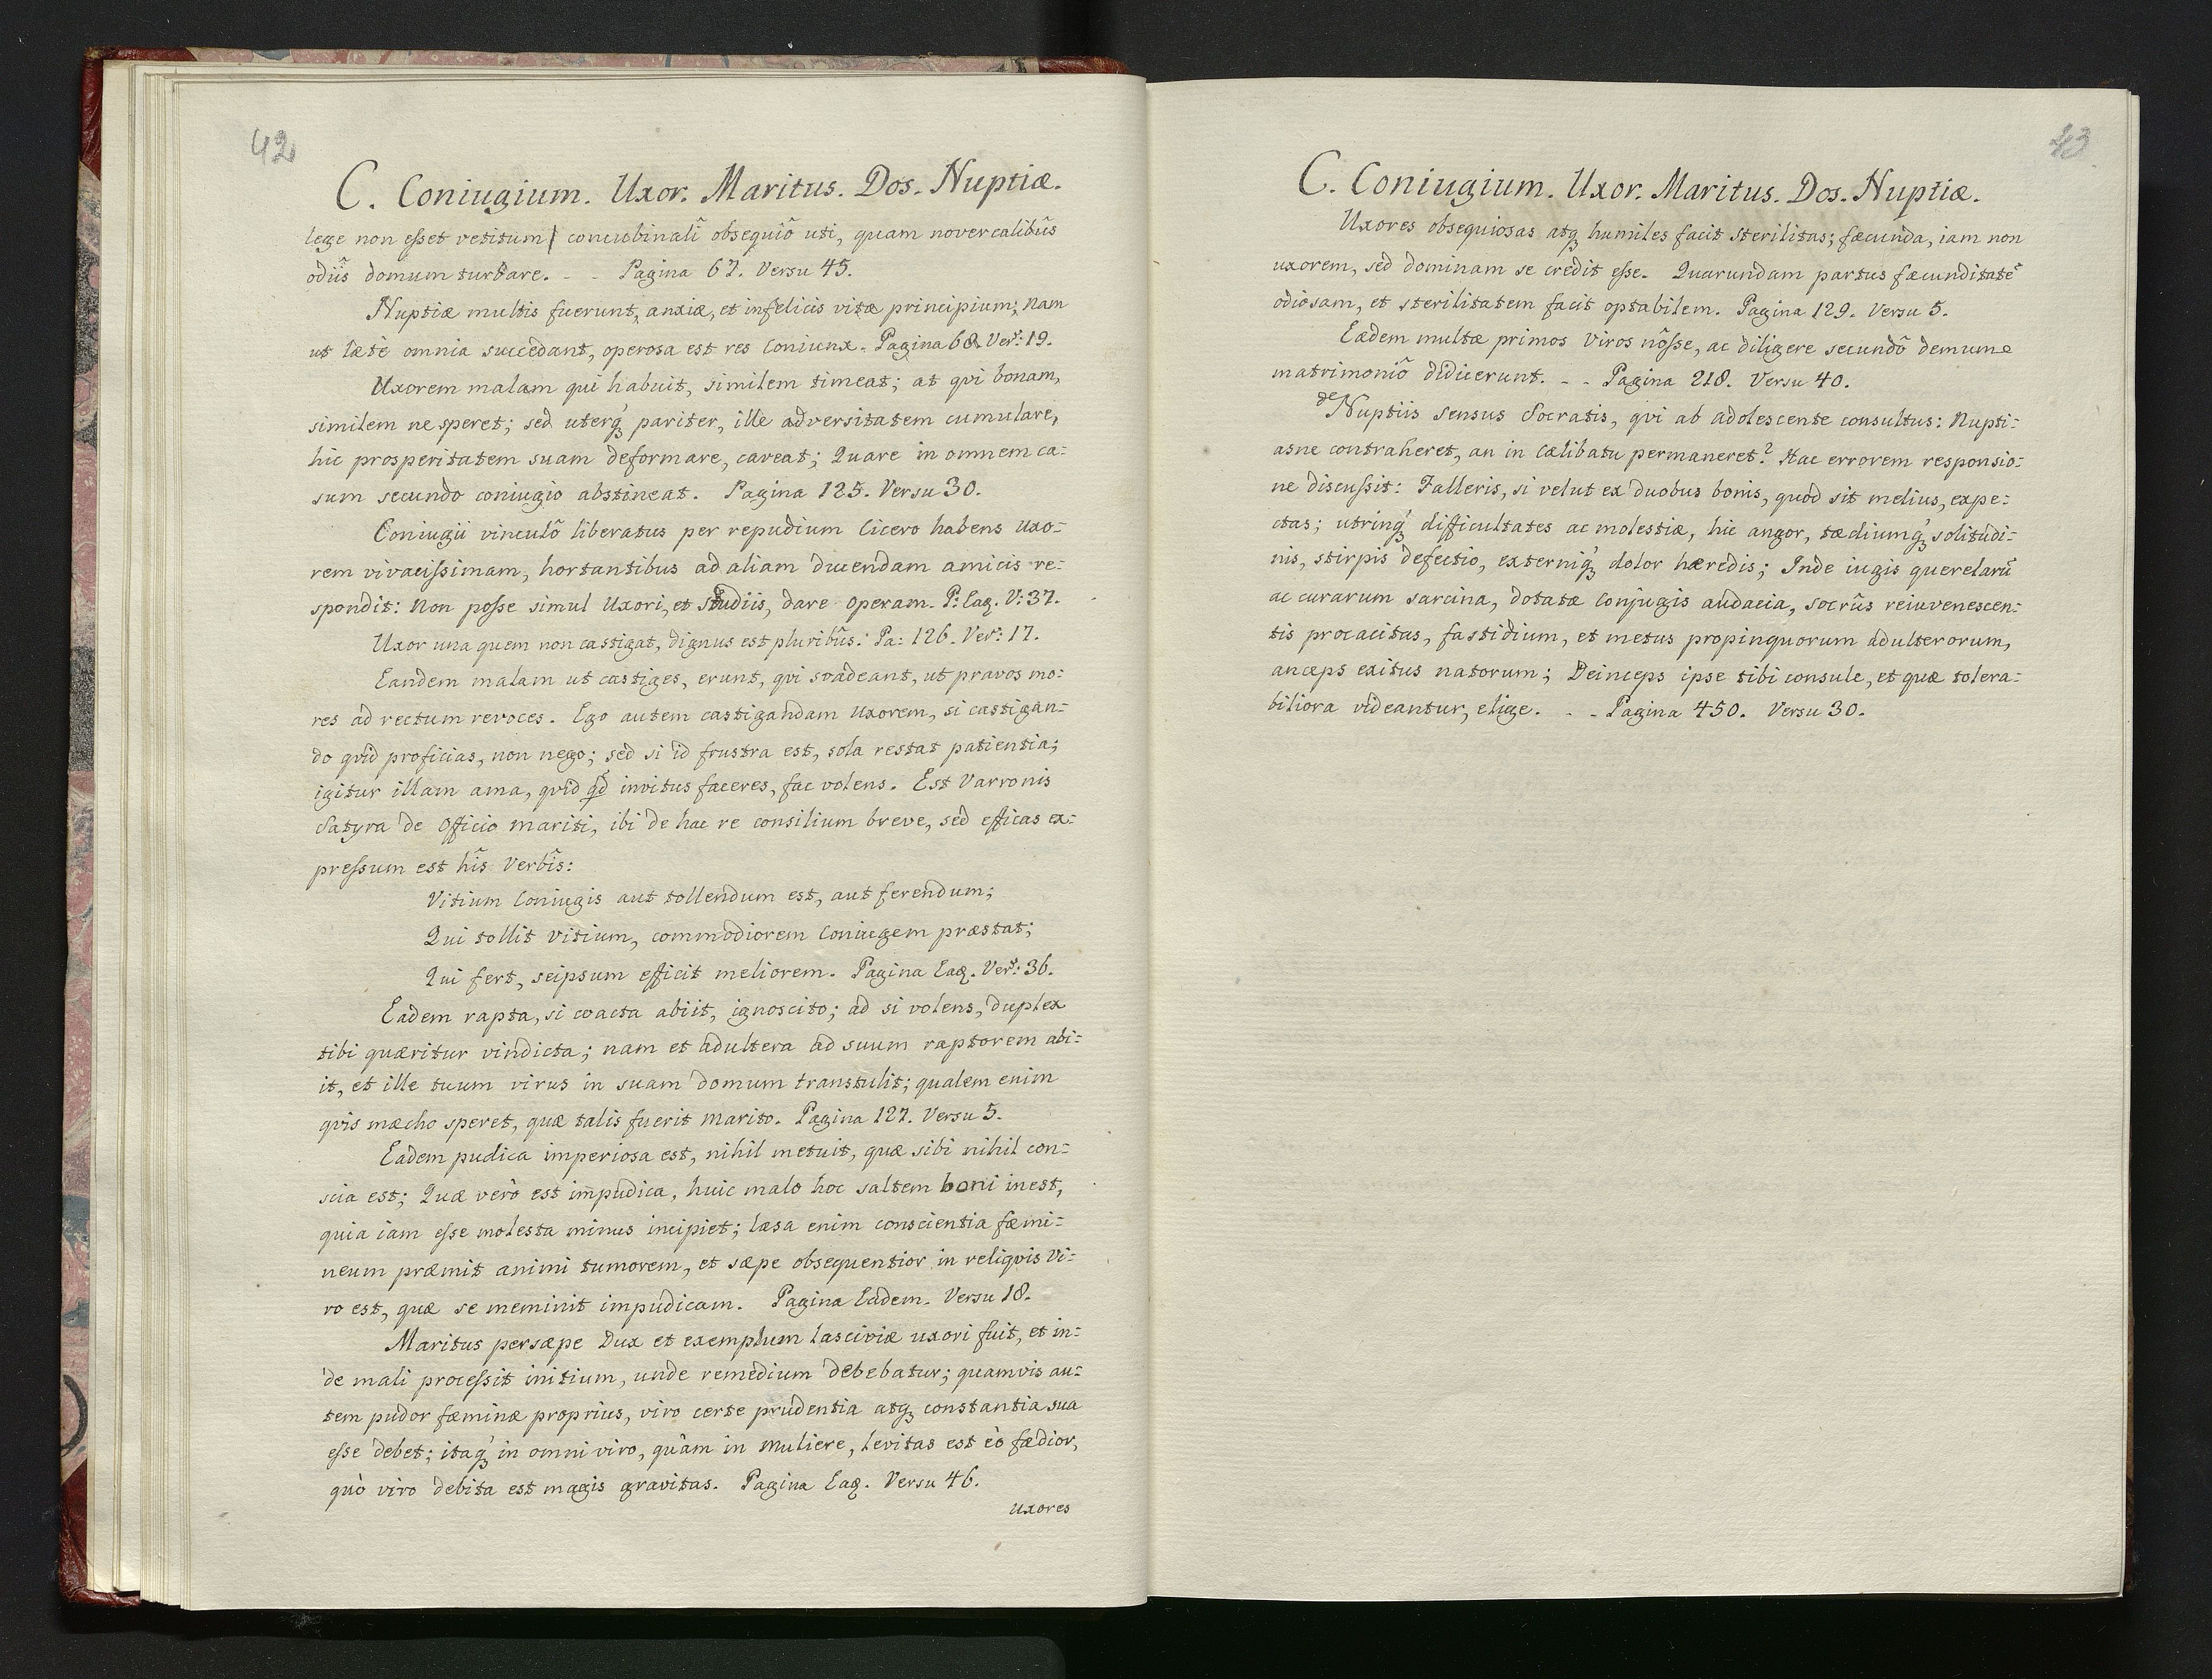 42
C. Coniugium. Uxor. Maritus. Dos. Nuptiæ.
lege non eſset vetitum/ concubinali᷈ obsequiô uti, quam novercalibûs
odiîs domum turbare. - - Pagina 67. Versu 45.
Nuptiæ multis fuerunt, anxiæ, et infelicis vitæ principium; Nam
ut læte omnia succedant, operosa est res Coniunx. Pagina 68. Ver: 19.
Uxorem malam qui habuit, similem timeat; at qvi bonam,
similem ne speret; sed uterq́ꝫ pariter, ille adversitatem cumulare,
hic prosperitatem suam deformare, caveat; Quare in omnem ca=
sum secundo coniugio abstineat. Pagina 125. Versu 30.
Coniugii vinculô liberatus per repudium Cicero habens Uxo=
rem vivaciſsimam, hortantibus ad aliam ducendam amicis re=
spondit: Non poſse simul Uxori, et studiis, dare Operam. P: Eaq. V: 37.
Uxor una quem non castigat, dignus est pluribûs: Pa: 126. Ver: 17.
Eandem malam ut castiges, erunt, qvi svadeant, ut pravos mo=
res ad rectum revoces. Ego autem castigandam Uxorem, si castigan=
do qvid proficias, non nego; sed si id frustra est, sola restat patientia;
igitur illam ama, qvid qd invitus faceres, fac volens. Est Varronis
Satyra de Officio mariti, ibi de hac re consilium breve, sed efficas ex=
preſsum est hîs Verbîs:
Vitium Coniugis aut tollendum est, aut ferendum;
Qui tollit vitium, commodiorem Coniugem præstat;
Qui fert, seipsum efficit meliorem. Pagina Eaq. Ver: 36.
Eadem rapta, si coacta abiit, ignoscito; ad si volens, duplex
tibi quæritur vindicta; nam et adultera ad suum raptorem abi=
it, et ille tuum virus in suam domum transtulit; qualem enim
qvis mæcho speret, quæ talis fuerit Marito. Pagina 127. Versu 5.
Eadem pudica imperiosa est, nihil metuit, quæ sibi nihil con=
scia est; Quæ verò est impudica, huic malo hoc saltem boni inest,
quia iam eſse molesta minus incipiet; læsa enim conscientia fæmi=
neum præmit animi tumorem, et sæpe obsequentior in reliqvis Vi=
ro est, quæ se meminit impudicam. Pagina Eadem. Versu 18.
Maritus persæpe Dux et exemplum lasciviæ uxori fuit, et in=
de mali proceſsit initium, unde remedium debebatur; quamvis au=
tem pudor fæminæ proprius, viro certe prudentia atqꝫ constantia sua
eſse debet; itaq́ꝫ in omni viro, quàm in muliere, levitas est eò fædior,
quò viro debita est magis gravitas. Pagina Eaq. Versu 46.
Uxores
43
C. Coniugium. Uxor. Maritus. Dos. Nuptiæ.
Uxores obsequiosas atqꝫ humiles facit Sterilitas; fæcunda, iam non
uxorem, sed dominam se credit eſse. Quarundam partus fæcunditatē
odiosam, et sterilitatem facit optabilem. Pagina 129. Versu 5.
Eædem multæ primos Viros nôſse, ac diligere secundô demum
matrimoniô didicerunt. - - Pagina 218. Versu 40.
de Nuptiis sensus Socratis, qvi ab adolescente consultus: Nupti=
asne contraheret, an in cælibatu permaneret? Hac errorem responsio=
ne discuſsit: Falleris, si velut ex duobus bonis, quod sit melius, expe=
ctas; utrinq́ꝫ difficultates ac molestiæ, hic angor, tædiumq́ꝫ solitudi=
nis, stirpis defectio, externiq́ꝫ dolor hæredis; Inde iugis querelarū
ac curarum sarcina, dotatæ Conjugis audacia, socrûs reiuvenescen=
tis procacitas, fastidium, et metus propinquorum adulterorum,
anceps exitus natorum; Deinceps ipse tibi consule, et quæ tolera=
biliora videantur, elige. - - Pagina 450. Versu 30.